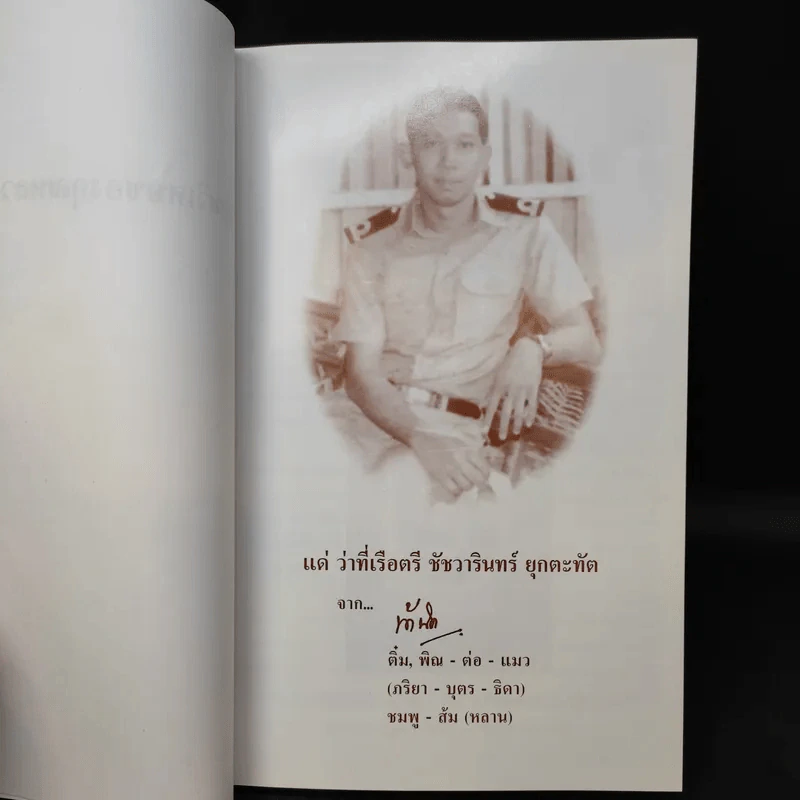 แด่ ว่าที่เรือตรี ชัชวารินทร์ ยุกตะทัต
จาก...
ติ๋ม, พิณ - ต่อ - แมว
(ภริยา - บุตร - ธิดา)
ชมพู - ส้ม (หลาน)